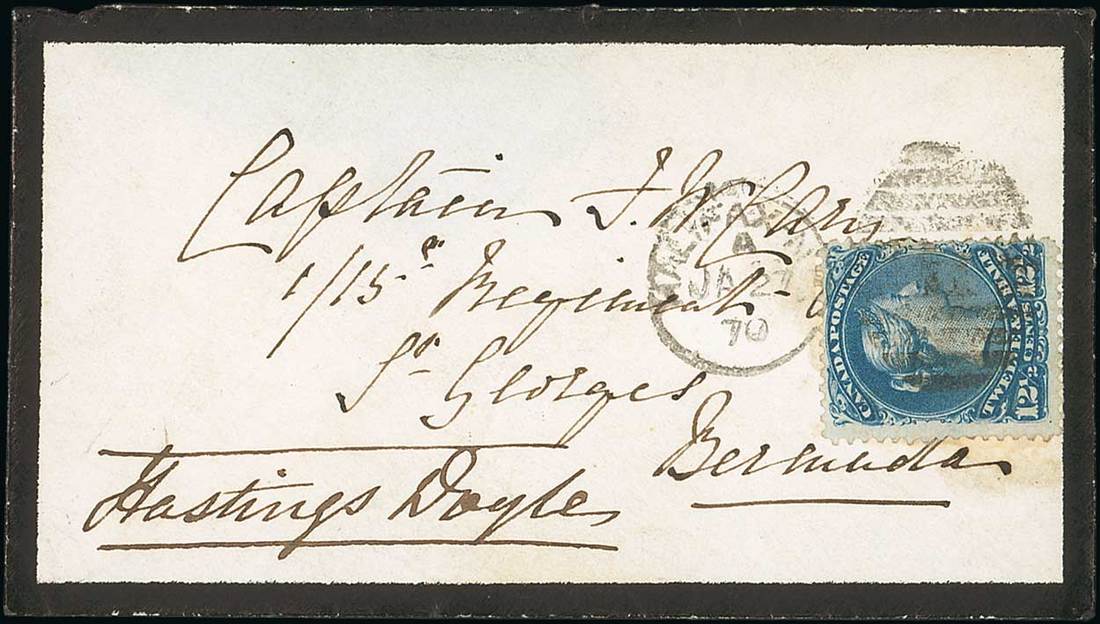 Captain J. W.
1/15th Regiment
St. Georges
Bermuda
Hastings Doyle
HALIFAX
A
JA 27
70
CANADA POSTAGE
TWELVE & A HALF CENTS
12½
12½